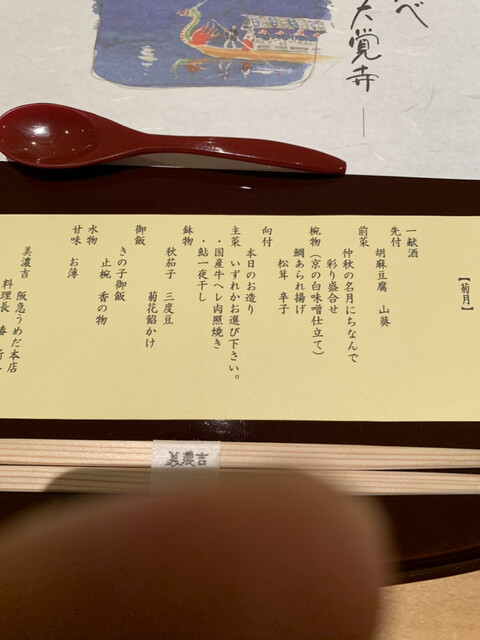 べ
大覚寺
【菊月】
一献酒
先付 胡麻豆腐 山葵
前菜 仲秋の名月にちなんで
彩り盛合せ
椀物 (京の白味噌仕立て)
鯛あられ揚げ
松茸 辛子
向付 本日のお造り
主菜 いずれかお選び下さい。
・国産牛ヘレ肉照焼き
・鮎一夜干し
鉢物 秋茄子 三度豆
菊花餡かけ
御飯 きの子御飯
止椀 香の物
水物
甘味 お薄
美濃吉 阪急うめだ本店
料理長
美濃吉